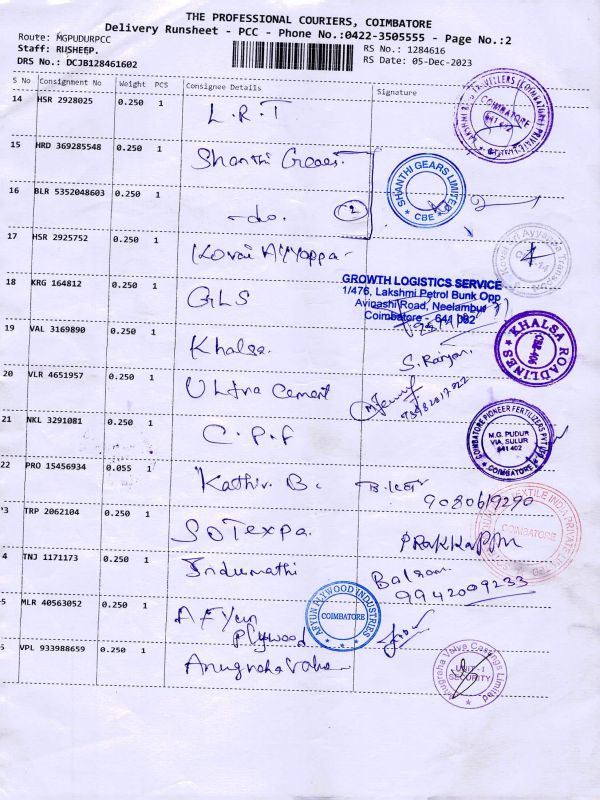 THE PROFESSIONAL COURIERS, COIMBATORE
Delivery Runsheet - PCC - Phone No.:0422-3505555 - Page No.:2
Route: MGPUDURPCC
Staff: RUSHEEP.
DRS No.: DCJB128461602
RS No.: 1284616
RS Date: 05-Dec-2023
S No Consignment No Weight PCS Consignee Details Signature
14 HSR 2928025 0.250 1 L.R.T
COIMBATORE
641 402
15 HRD 369285548 0.250 1 Shanthi Gears.
SHANTHI GEARS LIMITED
CBE
16 BLR 5352048603 0.250 1 -do. 2
17 HSR 2925752 0.250 1 Kovai Ayyappa
18 KRG 164812 0.250 1 GLS
GROWTH LOGISTICS SERVICE
1/476, Lakshmi Petrol Bunk Opp
Avinashi Road, Neelambur
Coimbatore - 641 062
19 VAL 3169890 0.250 1 Khalsa. S. Ranjan
KHALSA ROADLINES
20 VLR 4651957 0.250 1 Ultra Cement
21 NKL 3291081 0.250 1 C.P.F
COIMBATORE PIONEER FERTILIZERS PVT LTD
M.G. PUDUR
VIA, SULUR
641 402
COIMBATORE
22 PRO 15456934 0.055 1 Kathir B.
9080619290
3 TRP 2062104 0.250 1 SD Texpa.
TEXTILE INDIA PRIVATE
COIMBATORE
4 TNJ 1171173 0.250 1 Indumathi
9942009233
5 MLR 40563052 0.250 1 AFYun
Plywood
AFYUN PLYWOOD INDUSTRIES
COIMBATORE
VPL 933988659 0.250 1 Anugraha Valve
Anugraha Valve Castings Limited
UNIT-1
SECURITY